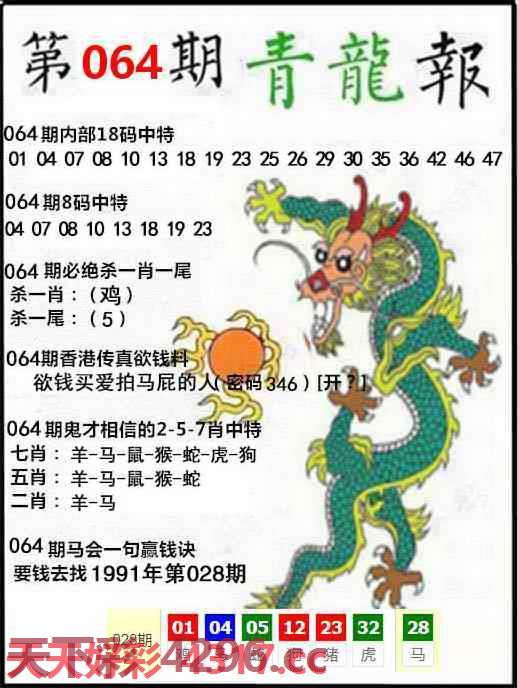 第064期 青龍報
064期内部18码中特
01 04 07 08 10 13 18 19 23 25 26 29 30 35 36 42 46 47
064期8码中特
04 07 08 10 13 18 19 23
064期必绝杀一肖一尾
杀一肖：(鸡)
杀一尾：(5)
064期香港传真欲钱料
欲钱买爱拍马屁的人(密码346)[开?]
064期鬼才相信的2-5-7肖中特
七肖：羊-马-鼠-猴-蛇-虎-狗
五肖：羊-马-鼠-猴-蛇
二肖：羊-马
064期马会一句赢钱诀
要钱去找1991年第028期
028期 01 04 05 12 23 32 28
蛇 狗 猪 虎 马